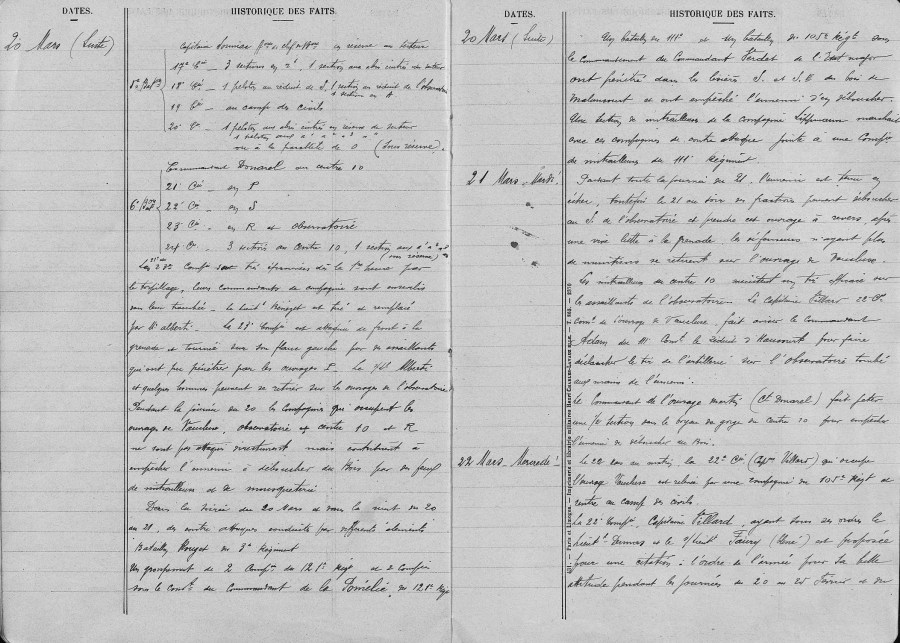 DATES.
HISTORIQUE DES FAITS.
20 Mars (Suite)
Capitaine en réserve au secteur
17e Cie - 3 sections en 2, 1 section aux abris centre du secteur
5e Baton
18e Cie - 1 peloton au réduit de S, 1 section au réduit de l'observatoire
1 section en A
19 Cie - au camp des civils
20 Cie - 1 peloton aux abris centre en réserve de secteur
1 peloton aux
ou à la parallèle de O (sous réserve)
Commandant Donarel au centre 10
21 Cie - en P
6e Baton
22e Cie - en S
23 Cie - en R et observatoire
24 Cie - 3 sections au centre 10, 1 section aux
(en réserve)
Les Comp. sont très éprouvées dès la 1ère heure par
le torpillage, leurs commandants de compagnie sont ensevelis
dans leur tranchée. le lieut. est tué et remplacé
par Mr Alberti. La 21e Compie est attaquée de front à la
grenade et tournée sur son flanc gauche par des assaillants
qui ont pu pénétrer par les ouvrages P. Le Alberti
et quelques hommes peuvent se retirer sur les ouvrages de l'observatoire
Pendant la journée du 20 les Compagnies qui occupent les
ouvrages de Vaucluse, observatoire et centre 10 et R
ne sont pas attaqués directement mais contribuent à
empêcher l'ennemi à déboucher du Bois par des feux
de mitrailleurs et de mousqueterie
Dans la soirée du 20 Mars et dans la nuit du 20
au 21, des contre attaques conduites par différents éléments
Bataillon Rouget du 3e Régiment
Un groupement de 2 Compies du 121e Régt et 2 Compies
sous le Comt du Commandant de la Pomélie, du 121e Régt
DATES.
HISTORIQUE DES FAITS.
20 Mars (Suite)
Un bataillon du 111e et un bataillon du 105e Régt sous
le Commandement du Commandant Verdet de l'Etat major
ont pénétré dans la lisière S. et S.E du bois de
Malancourt et ont empêché l'ennemi d'en déboucher.
Une section de mitrailleurs de la compagnie Lippmann marchait
avec ces compagnies de contre attaque jointe à une Compie
de mitrailleurs du 111e Régiment.
21 Mars - Mardi
Pendant toute la journée du 21, l'ennemi est tenu en
échec, toutefois le 21 au soir des fractions peuvent déboucher
au S. de l'observatoire et prendre cet ouvrage à revers, après
une vive lutte à la grenade. les défenseurs n'ayant plus
de munitions se retirent sur l'ouvrage de Vaucluse.
Les mitrailleurs du centre 10 un tir efficace sur
les assaillants de l'observatoire. Le Capitaine Villard 22e Cie
comt de l'ouvrage de Vaucluse, fait aviser le Commandant
Adam du 111e Comt le Réduit d'Haucourt pour faire
déclancher le tir de l'artillerie sur l'observatoire tombé
aux mains de l'ennemi.
Le Commandant de l'ouvrage (Ct Donarel) fait jeter
une 1/2 section dans le boyau de gorge du centre 10 pour empêcher
l'ennemi de déboucher du Bois.
22 Mars - Mercredi
Le 22 au matin, la 22e Cie (Capne Villard) qui occupe
l'ouvrage Vaucluse est relevée par une compagnie du 105e Régt et
rentre au camp des civils
La 22e Compie, Capitaine Villard, ayant sous ses ordres le
Lieutt et le s/lieutt Faury (René) est proposée
pour une citation à l'ordre de l'armée pour sa belle
attitude pendant les journées du 20 au 25 Février et du
691. - Paris et Limoges. - Imprimerie et librairie militaires Henri CHARLES-LAVAUZELLE.